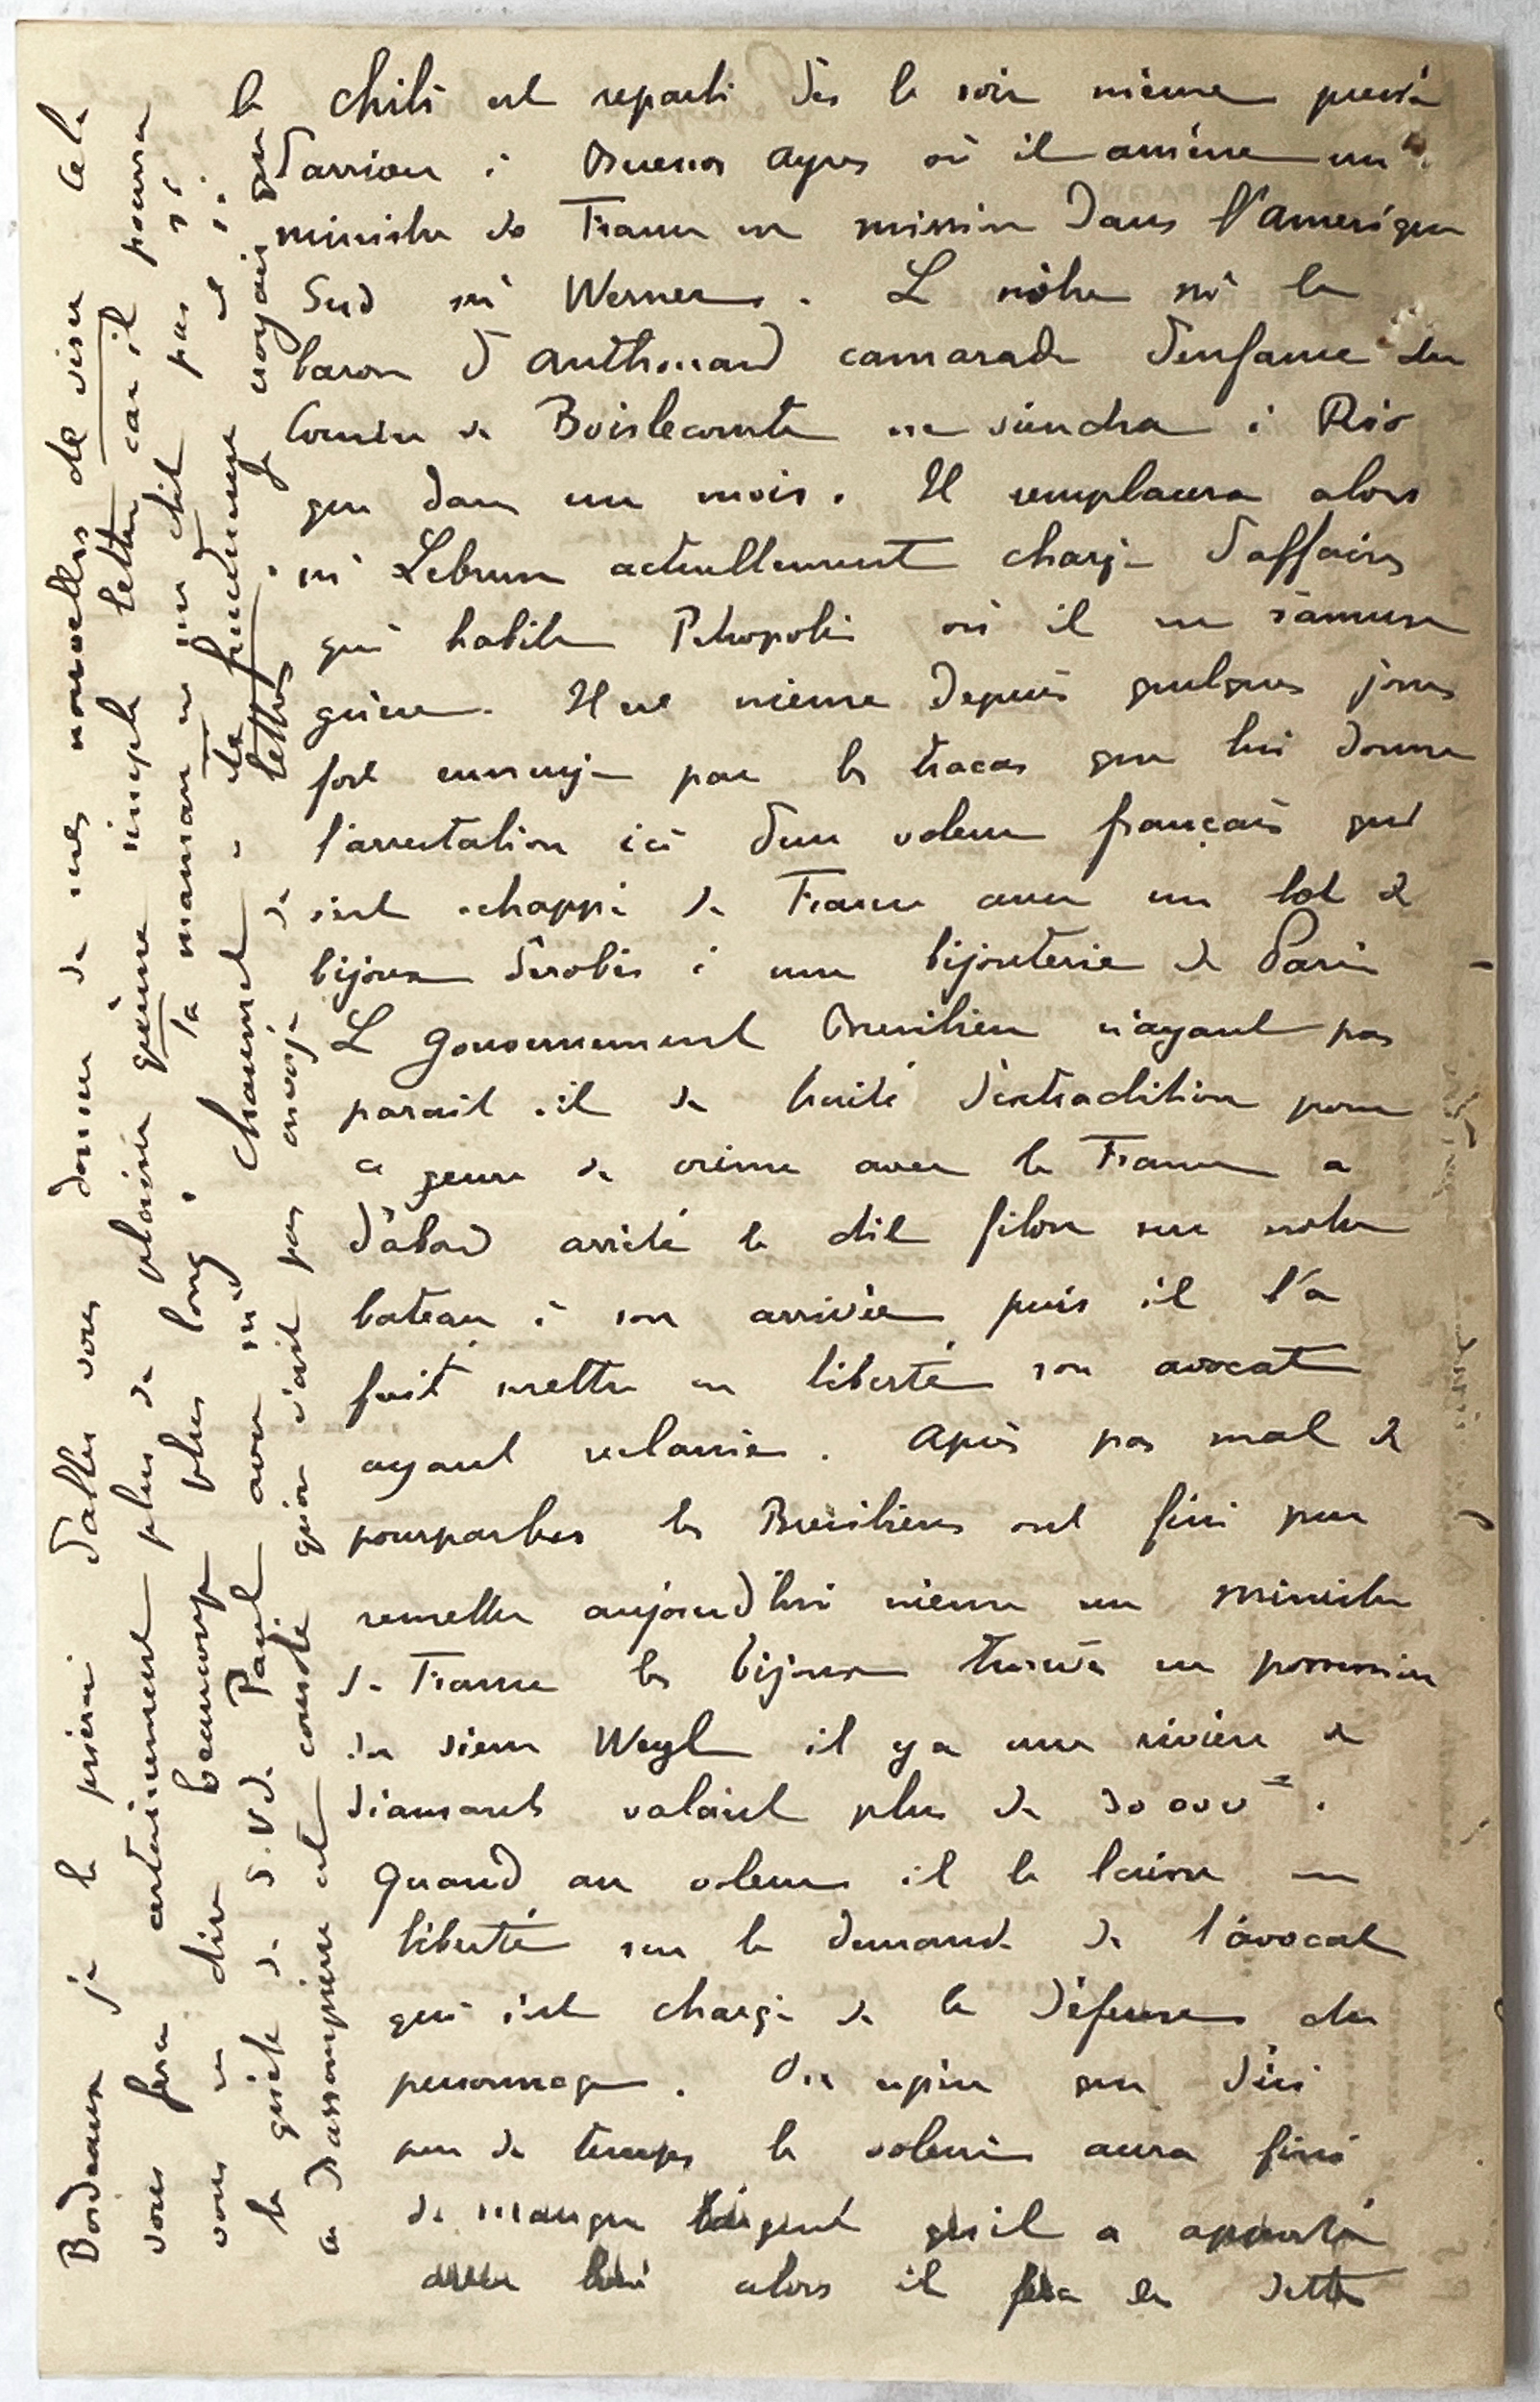 le Chili est reparti dès le soir même pressé
d'arriver à Buenos Ayres où il amène un
ministre de France en mission dans l'Amérique
Sud mr Werner. Le nôtre mr le
baron d'Anthouard camarade d'enfance du
Cousin de Boislecomte ne viendra à Rio
que dans un mois. Il remplacera alors
mr Lebrun actuellement chargé d'affaires
qui habite Petropolis où il ne s'amuse
guère. Il est même depuis quelques jours
fort ennuyé par les tracas que lui donne
l'arrestation ici d'un voleur français qui
s'est échappé de France avec un lot de
bijoux dérobés à une bijouterie de Paris -
Le Gouvernement Bresilien n'ayant pas
parait-il de traité d'extradition pour
ce genre de crime avec la France a
d'abord arrêté le dit filou sur notre
bateau à son arrivée puis il l'a
fait mettre en liberté son avocat
ayant reclamé. Après pas mal de
pourparlers les Bresiliens ont fini par
remettre aujourd'hui même au ministre
de France les bijoux trouvés en possession
du sieur Weyl il y a une rivière de
diamants valant plus de 30 000 f.
Quand au voleur il le laisse en
liberté sur la demande de l'avocat
qui s'est chargé de la défense du
personnage. On espère que d'ici
peu de temps le voleur aura fini
de manger l'argent qu'il a apporté
avec lui alors il fera des dettes
Bordeaux je le prierai d'aller vous donner de mes nouvelles de visu cela
vous fera certainement plus de plaisir qu'une simple lettre car il pourra
vous en dire beaucoup plus long. la maman ne me dit pas si
la quête de S.V.de Paul avec mlle Chaumet a été fructueuse et si
ce d'assompierre est consolé qu'on n'ait pas envoyé de lettres. je croyais que